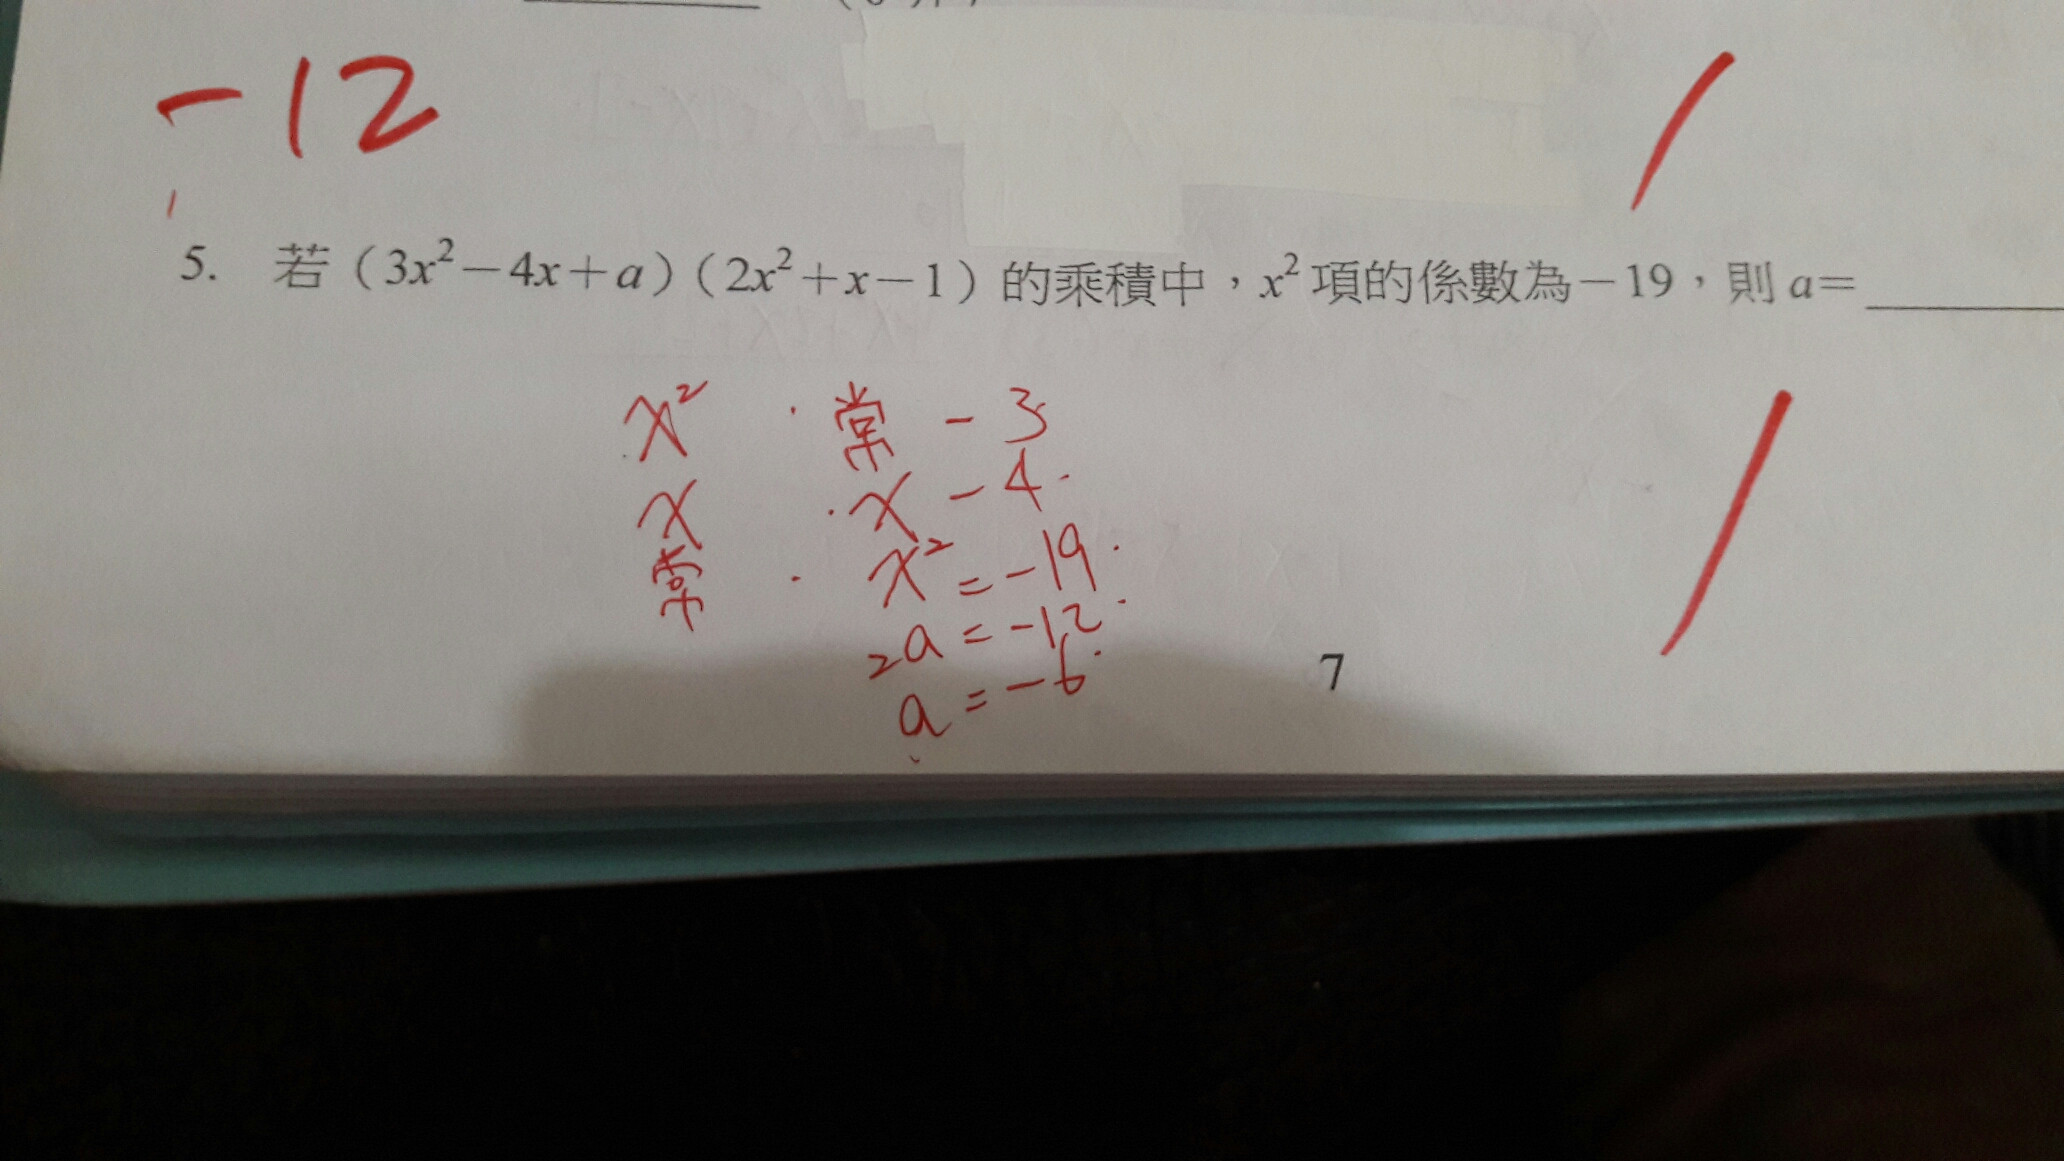 -12
5. 若（3x²－4x＋a）（2x²＋x－1）的乘積中，x²項的係數為－19，則 a＝
x² · 常 - 3
x · x - 4
常 · x² = -19
2a = -12
a = -6
7